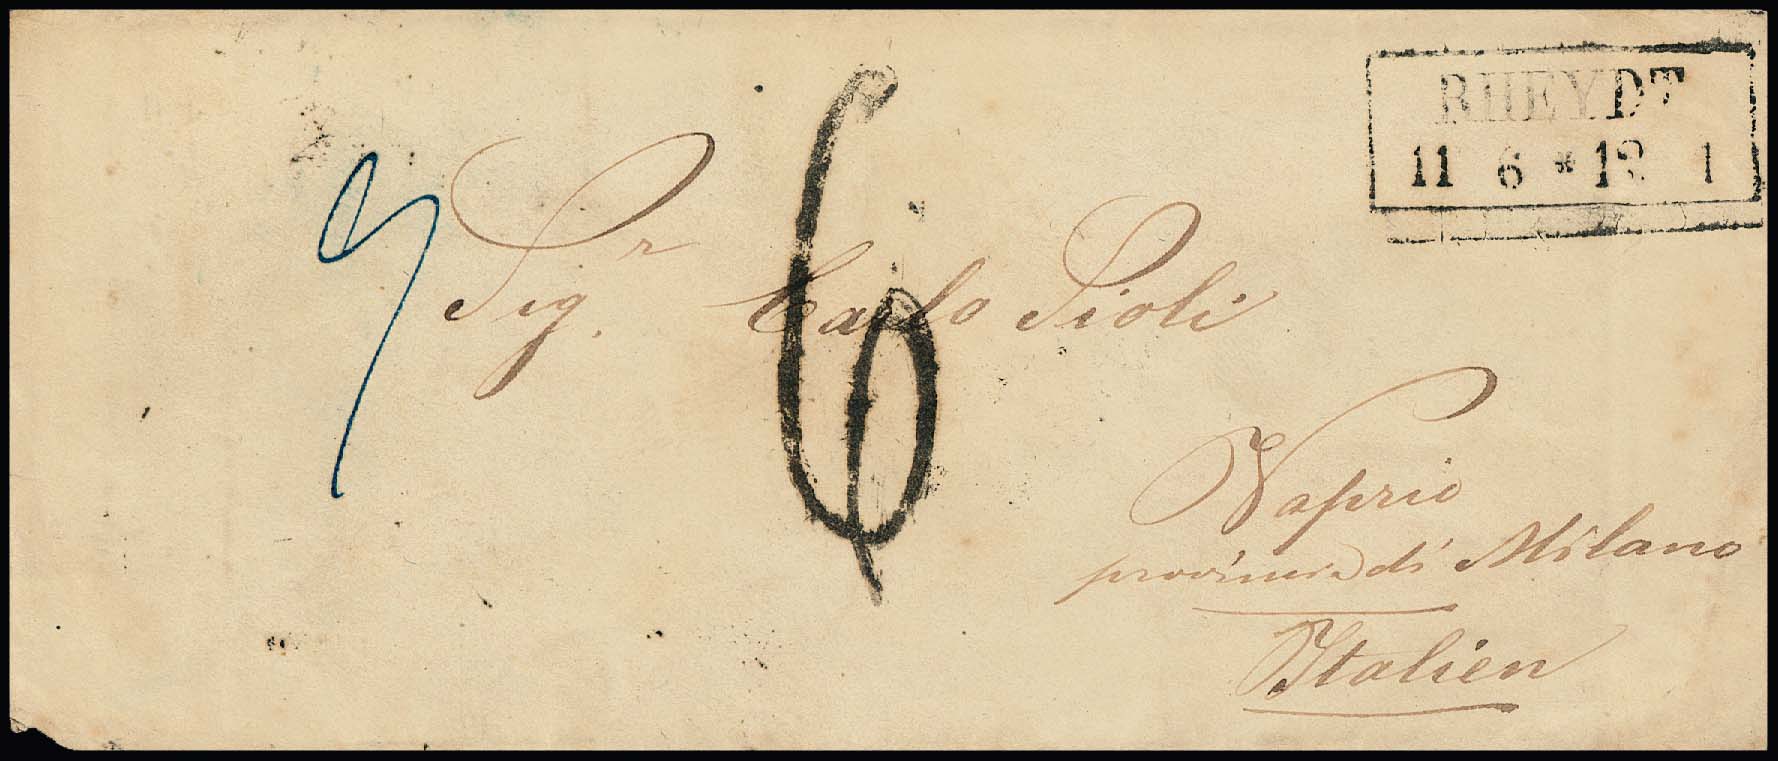 RHEYDT
11 6 * 12 1
9
6
Sigr. Carlo Pioli
Vaprio
provincia di Milano
Italien